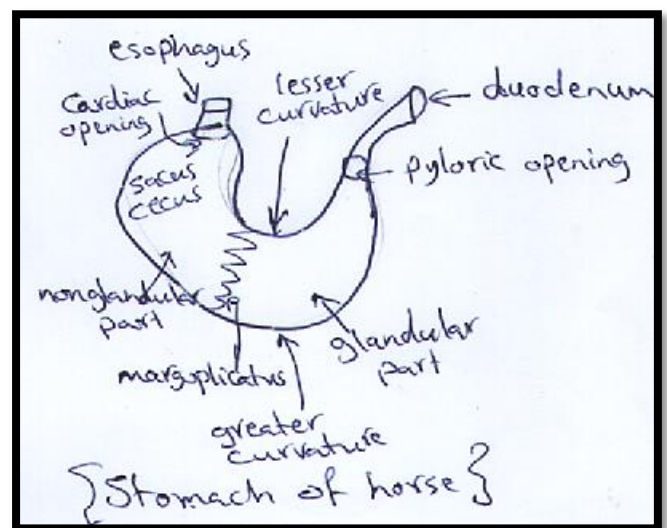 esophagus
Cardiac
opening
lesser
curvature
duodenum
pyloric opening
sacus
cecus
nonglandular
part
glandular
part
margoplicatus
greater
curvature
{Stomach of horse}